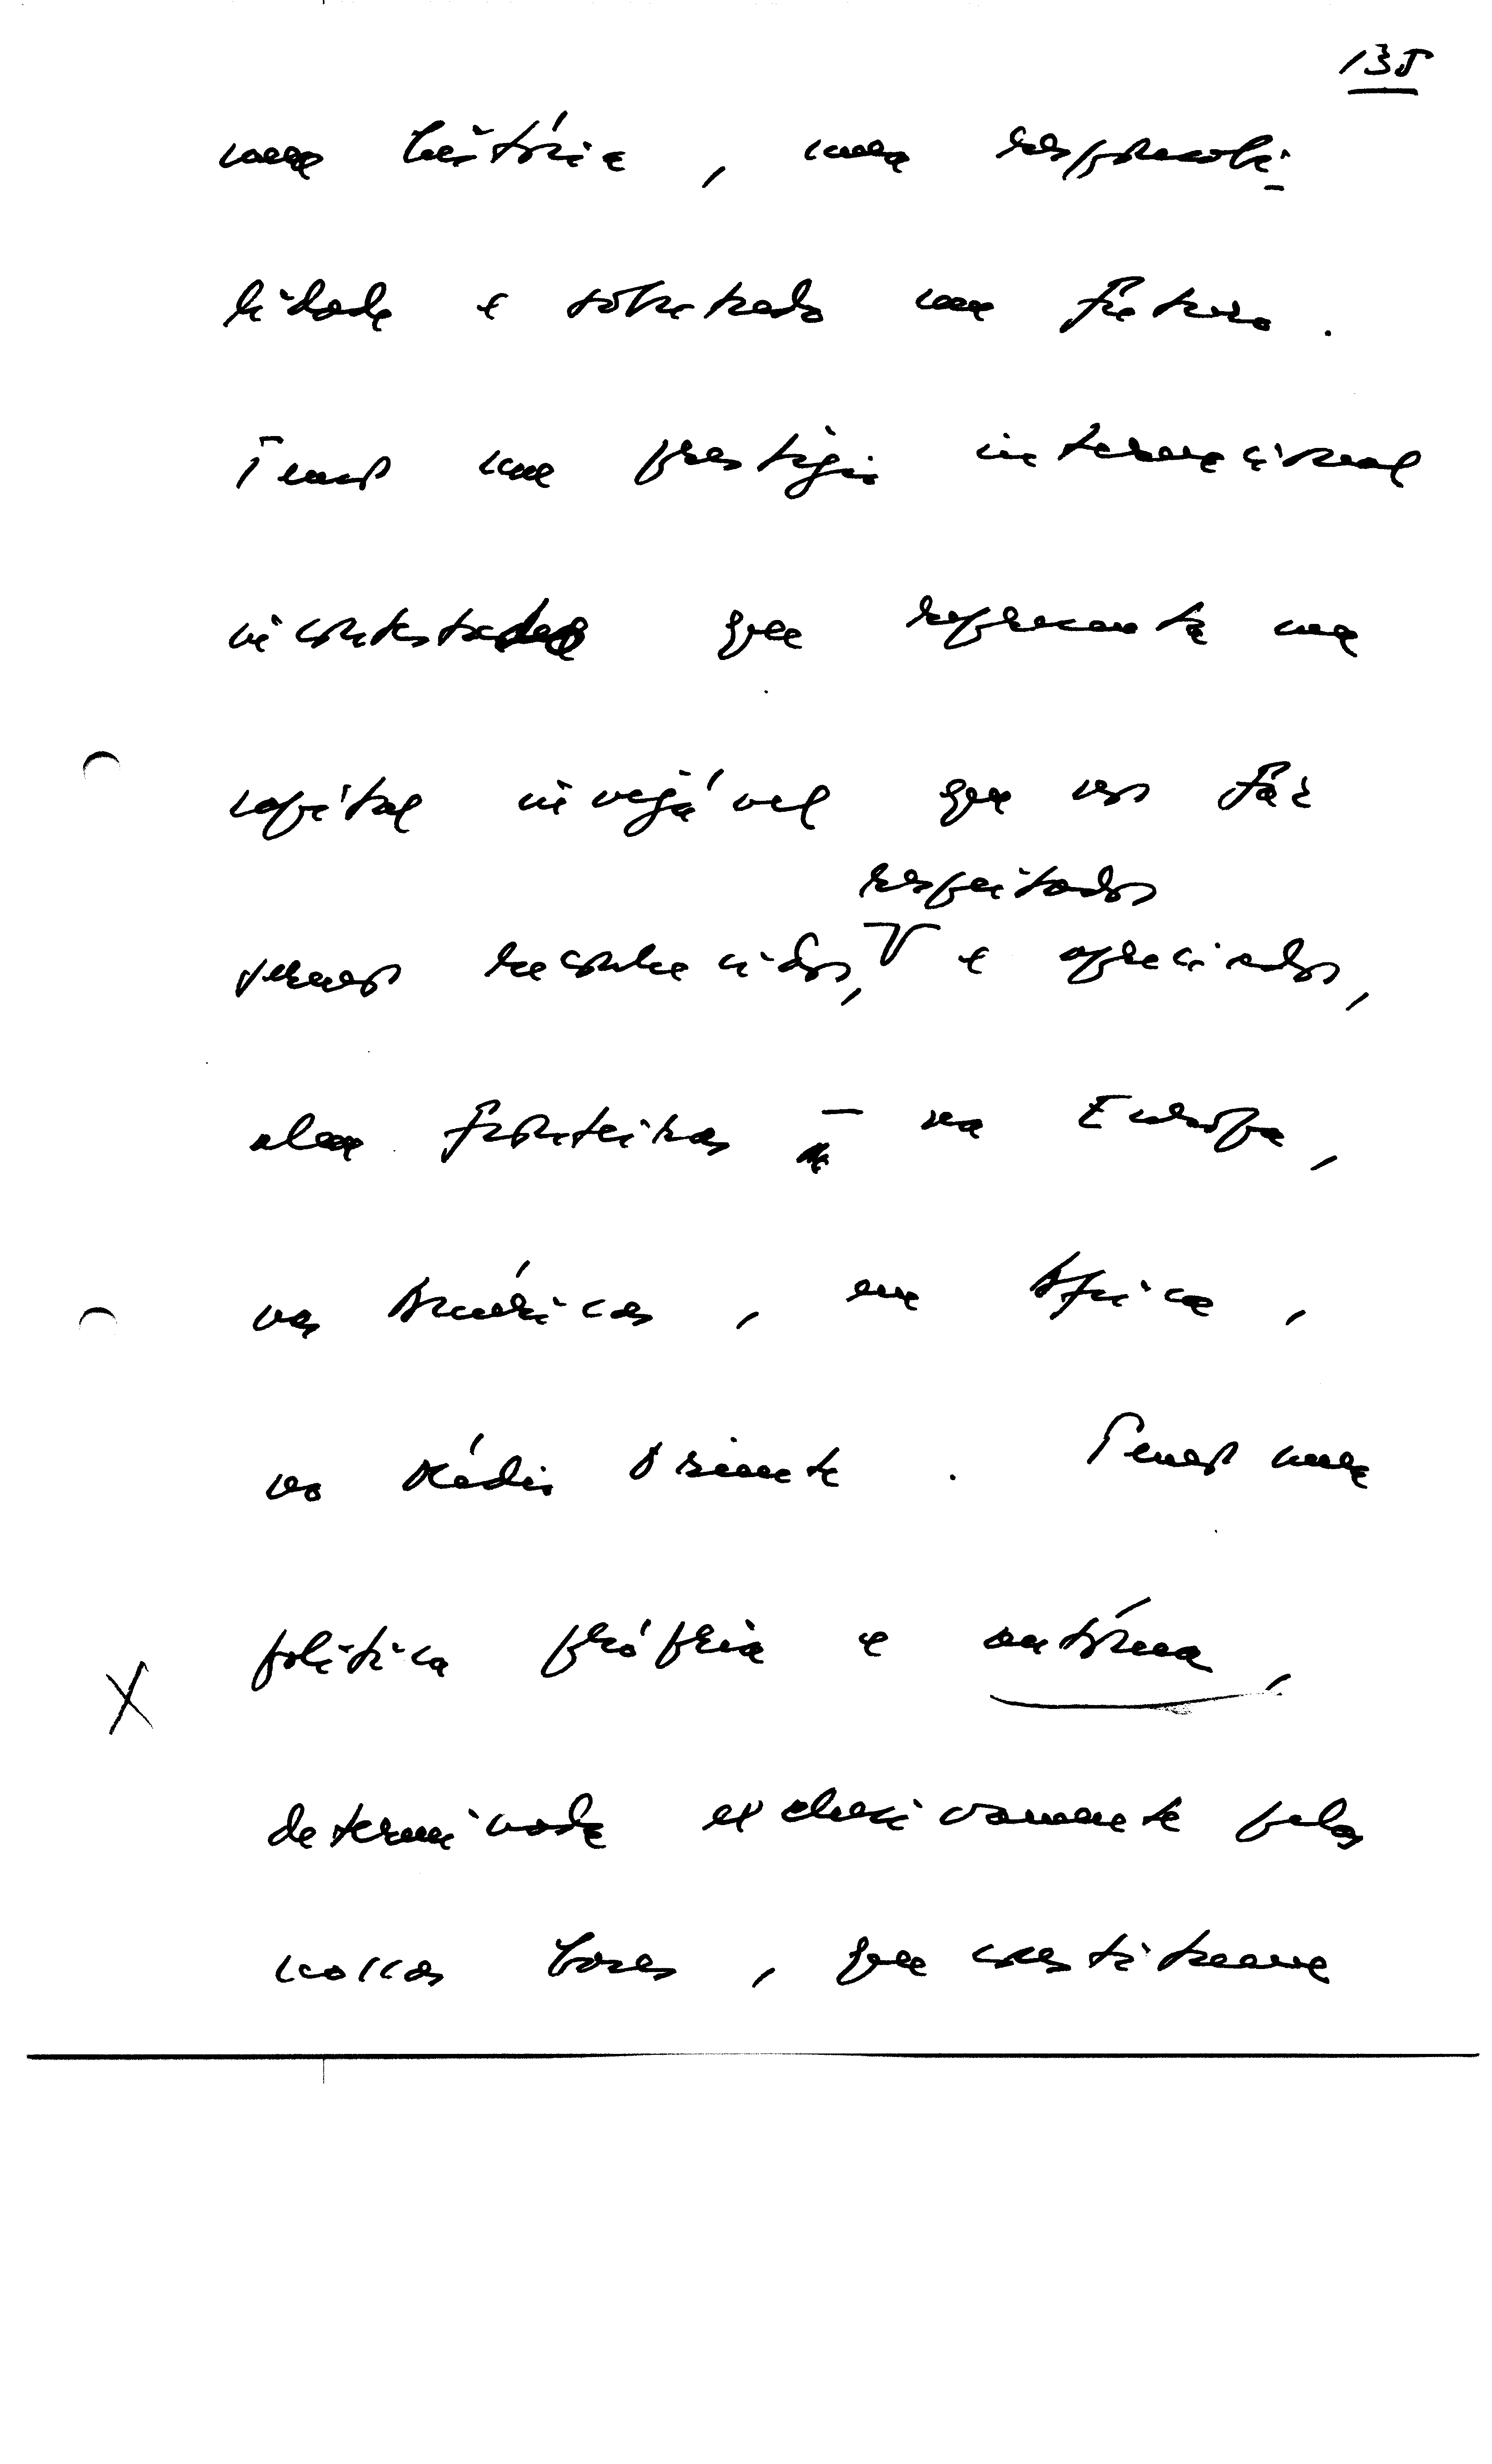 135
uma história, uma responsabi-
lidade e sobretudo um futuro.
Temos um prestígio internacional
incontestado que representa um
capital invejável que nos faz
respeitados
sermos reconhecidos, e apreciados,
alem fronteiras – na Europa,
nas Américas, em Africa,
no Médio Oriente. Temos uma
política própria e autónoma,
determinada exclusivamente pelas
nossas bases, que constituem